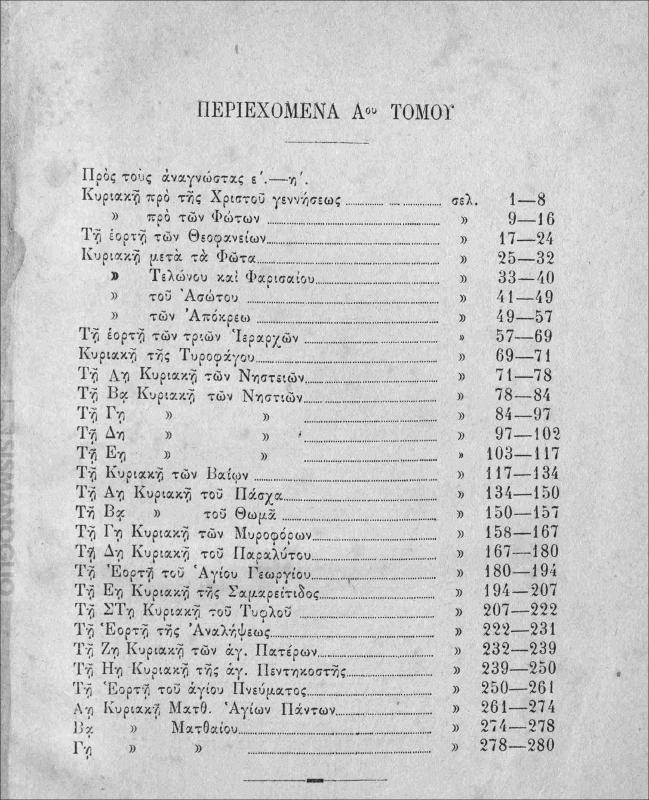 ΠΕΡΙΕΧΟΜΕΝΑ Αου ΤΟΜΟΥ
Πρὸς τοὺς ἀναγνώστας ε΄.—η΄.
Κυριακῇ πρὸ τῆς Χριστοῦ γεννήσεως σελ. 1—8
» πρὸ τῶν Φώτων » 9—16
Τῇ ἑορτῇ τῶν Θεοφανείων » 17—24
Κυριακῇ μετὰ τὰ Φῶτα » 25—32
» Τελώνου καὶ Φαρισαίου » 33—40
» τοῦ Ἀσώτου » 41—49
» τῶν Ἀπόκρεω » 49—57
Τῇ ἑορτῇ τῶν τριῶν Ἱεραρχῶν » 57—69
Κυριακῇ τῆς Τυροφάγου » 69—71
Τῇ Αῃ Κυριακῇ τῶν Νηστειῶν » 71—78
Τῇ Βᾳ Κυριακῇ τῶν Νηστιῶν » 78—84
Τῇ Γῃ » » » 84—97
Τῇ Δῃ » » » 97—102
Τῇ Εῃ » » » 103—117
Τῇ Κυριακῇ τῶν Βαΐων » 117—134
Τῇ Αῃ Κυριακῇ τοῦ Πάσχα » 134—150
Τῇ Βᾳ » τοῦ Θωμᾶ » 150—157
Τῇ Γῃ Κυριακῇ τῶν Μυροφόρων » 158—167
Τῇ Δῃ Κυριακῇ τοῦ Παραλύτου » 167—180
Τῇ Ἑορτῇ τοῦ Ἁγίου Γεωργίου » 180—194
Τῇ Εῃ Κυριακῇ τῆς Σαμαρείτιδος » 194—207
Τῇ ΣΤῃ Κυριακῇ τοῦ Τυφλοῦ » 207—222
Τῇ Ἑορτῇ τῆς Ἀναλήψεως » 222—231
Τῇ Ζῃ Κυριακῇ τῶν ἁγ. Πατέρων » 232—239
Τῇ Ηῃ Κυριακῇ τῆς ἁγ. Πεντηκοστῆς » 239—250
Τῇ Ἑορτῇ τοῦ ἁγίου Πνεύματος » 250—261
Αῃ Κυριακῇ Ματθ. Ἁγίων Πάντων » 261—274
Βᾳ » Ματθαίου » 274—278
Γῃ » » » 278—280
SISMANOGLIO